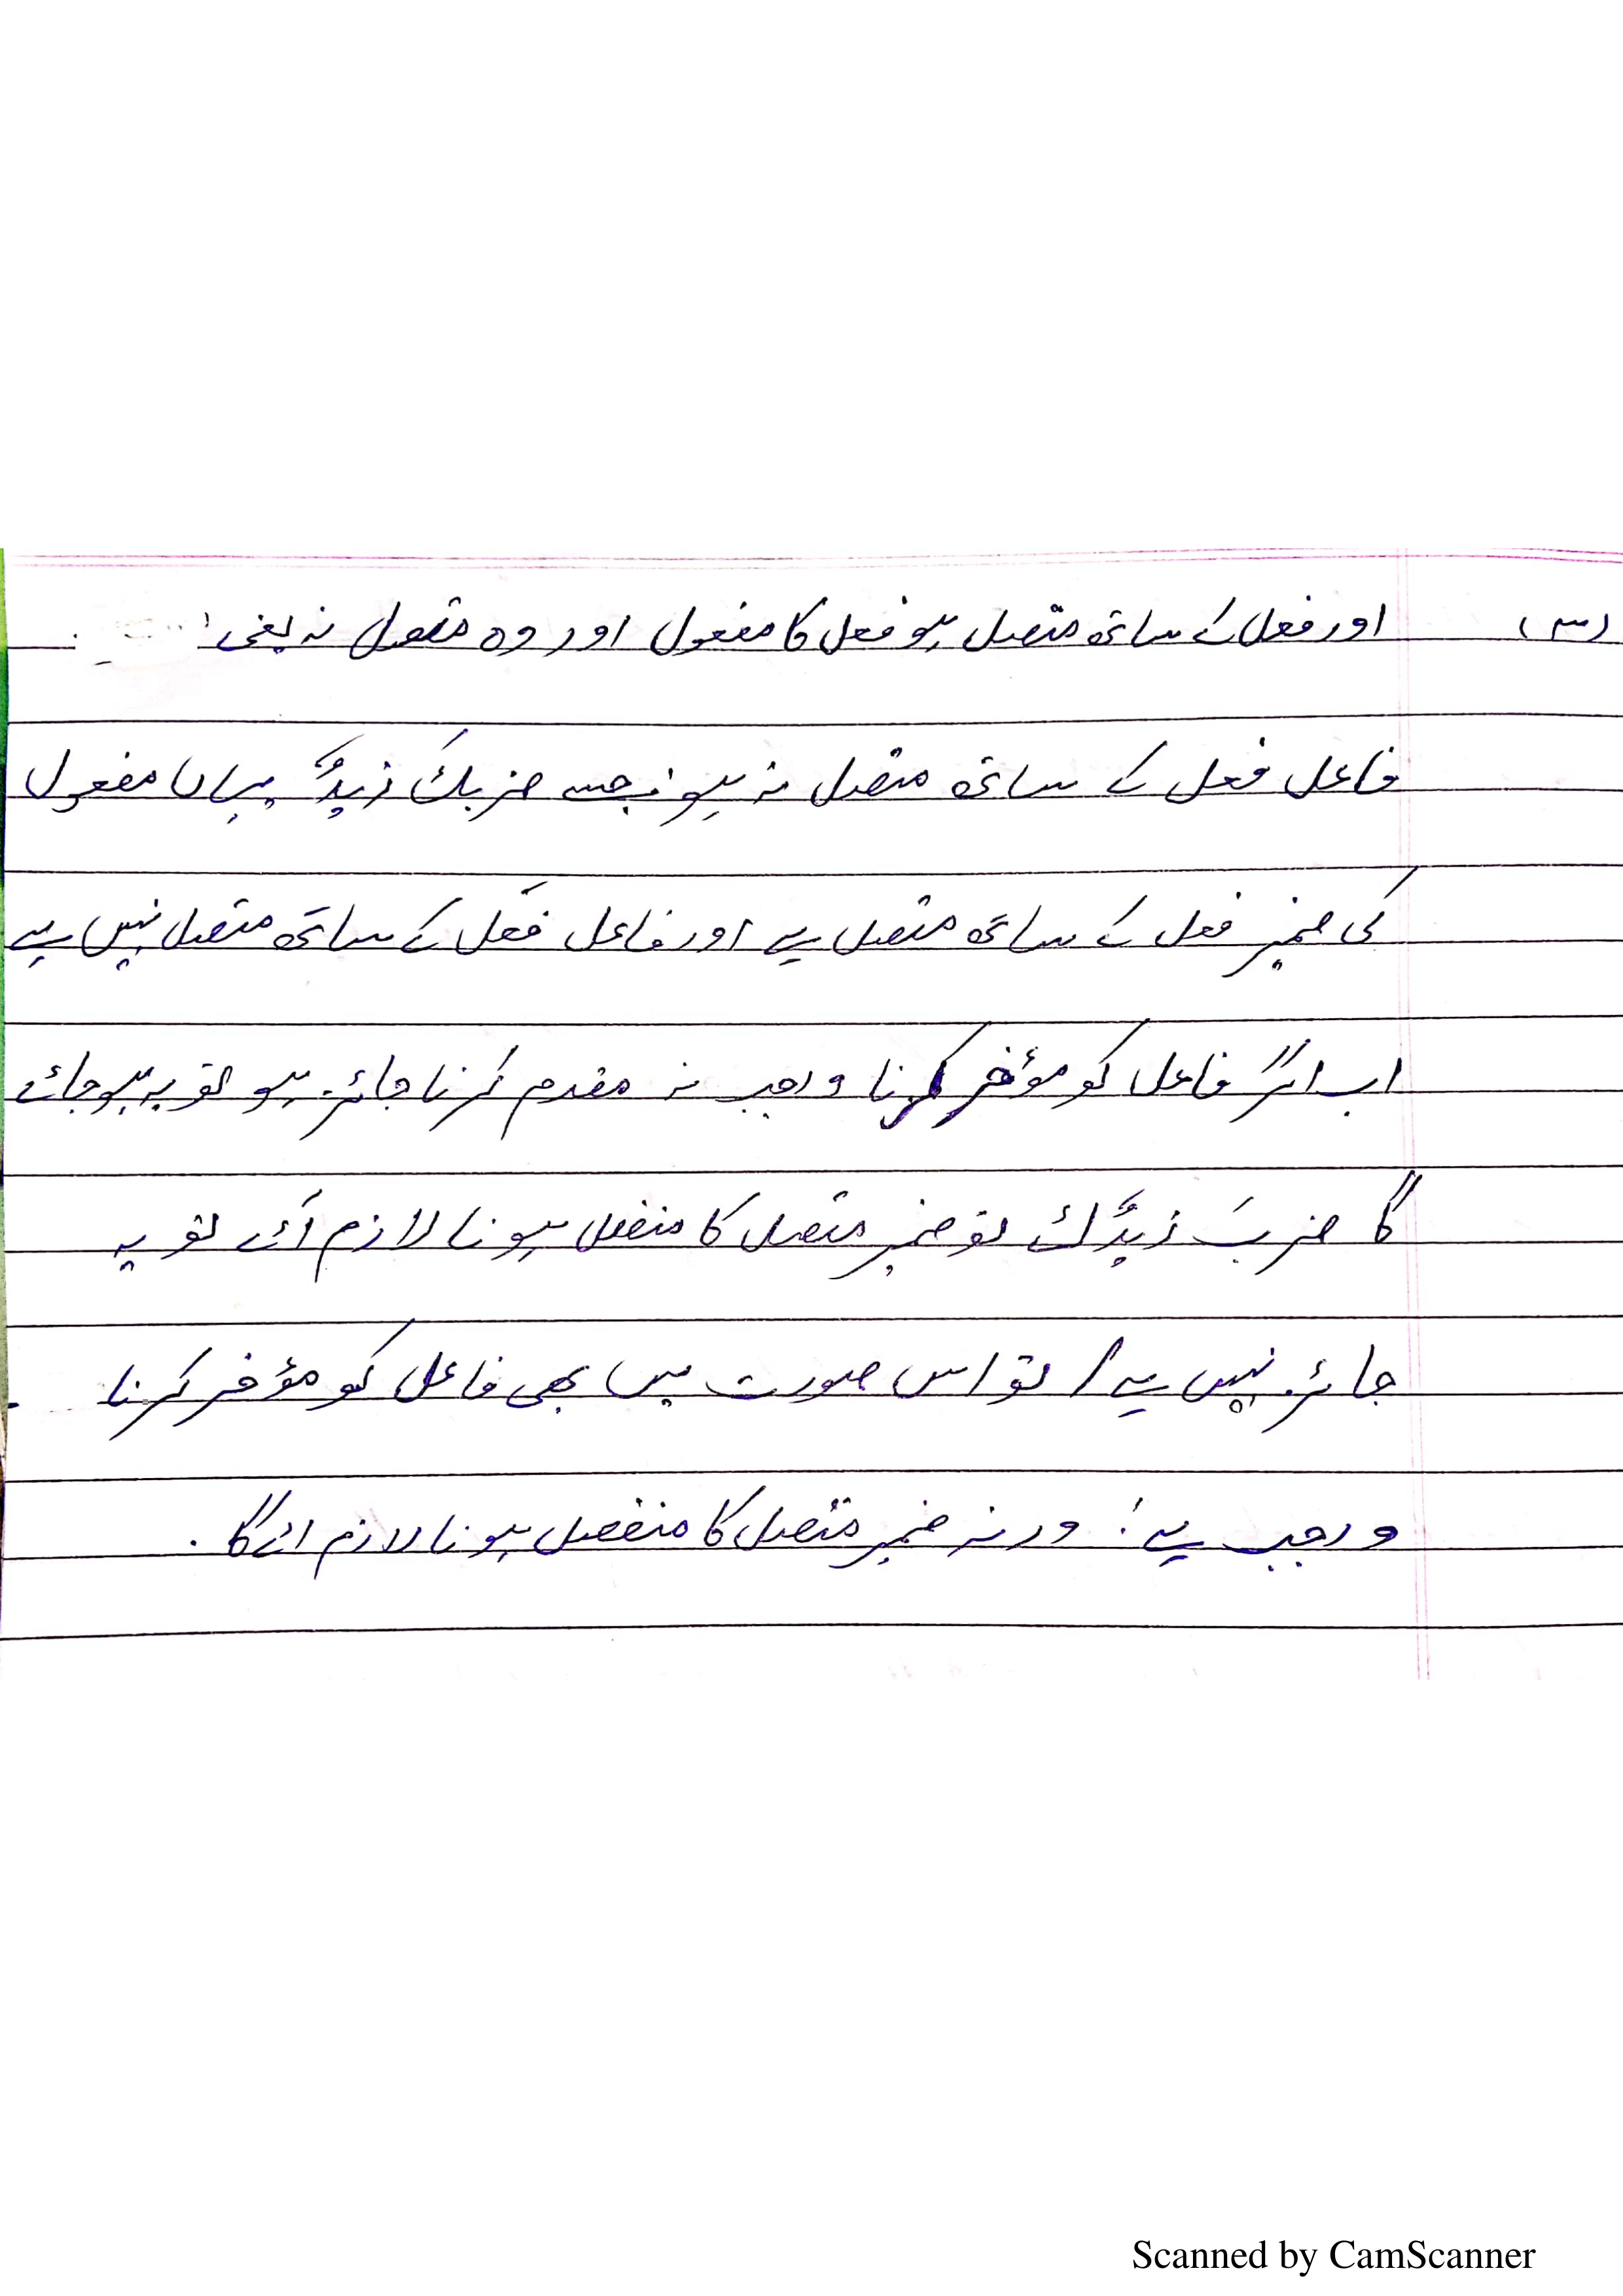 (۳) اور فعل کے ساتھ متصل ہو فعل کا مفعول اور وہ متصل نہ یعنی
فاعل فعل کے ساتھ متصل نہ ہو جیسے ضربكَ زیدٌ یہاں مفعول
کی ضمیر فعل کے ساتھ متصل ہے اور فاعل فعل کے ساتھ متصل نہیں ہے
اب اگر فاعل کو مؤخر کرنا واجب نہ مقدم کرنا جائز ہو تو یہ ہو جائے
گا ضربَ زیدٌك تو ضمیر متصل کا منفصل ہونا لازم آئے تو یہ
جائز نہیں ہے / تو اس صورت میں بھی فاعل کو مؤخر کرنا
واجب ہے! ورنہ ضمیر متصل کا منفصل ہونا لازم ائے گا.
Scanned by CamScanner